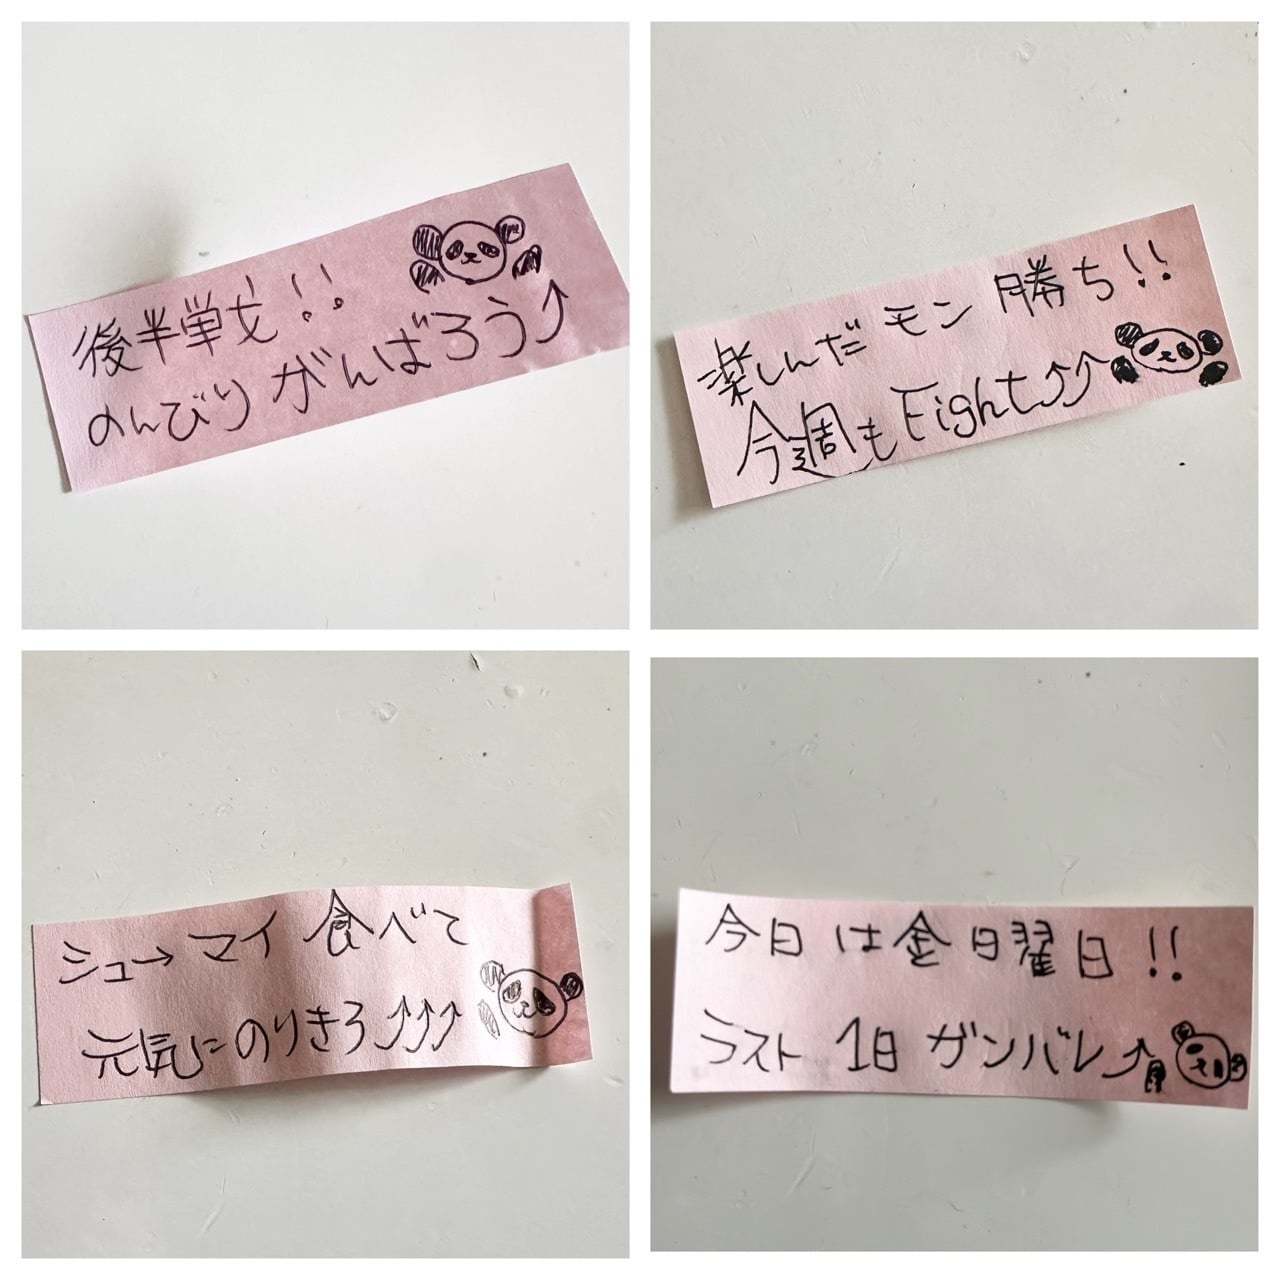 後半戦!!
のんびりがんばろう⤴
楽しんだモン勝ち!!
今週もFight⤴⤴
シューマイ食べて
元気にのりきろ⤴⤴⤴
今日は金曜日!!
ラスト1日ガンバレ⤴